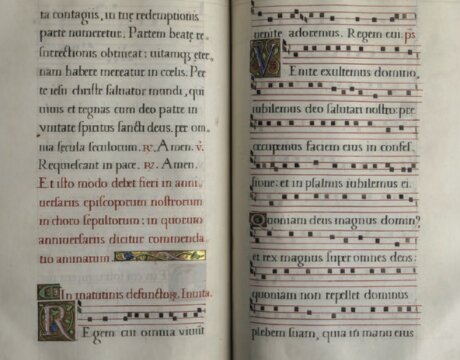 ta contagiis, in tuę redemptionis
parte numeretur. Partem beatę re⸗
surrectionis obtineat: uitamqȝ eter⸗
nam habere mereatur in cœlis. Per
te iesu christe saluator mundi, qui
uiuis et regnas cum deo patre in
vnitate spiritus sancti deus. per om⸗
nia secula seculorum. ℟. Amen. ℣.
Requiescant in pace. ℟. Amen.
Et isto modo debet fieri in anni⸗
uersariis episcoporum nostrorum
in choro sepultorum: in quorum
anniuersariis dicitur commenda
tio animarum
In matutinis defunctorum. Inuita.
Regem cui omnia viuunt
uenite adoremus. Regem cui. ps
Venite exultemus domino,
iubilemus deo salutari nostro: pre
occupemus faciem eius in confes
sione: et in psalmis iubilemus ei.
Quoniam deus magnus domin⁹
et rex magnus super omnes deos:
quoniam non repellet dominus
plebem suam, quia in manu eius